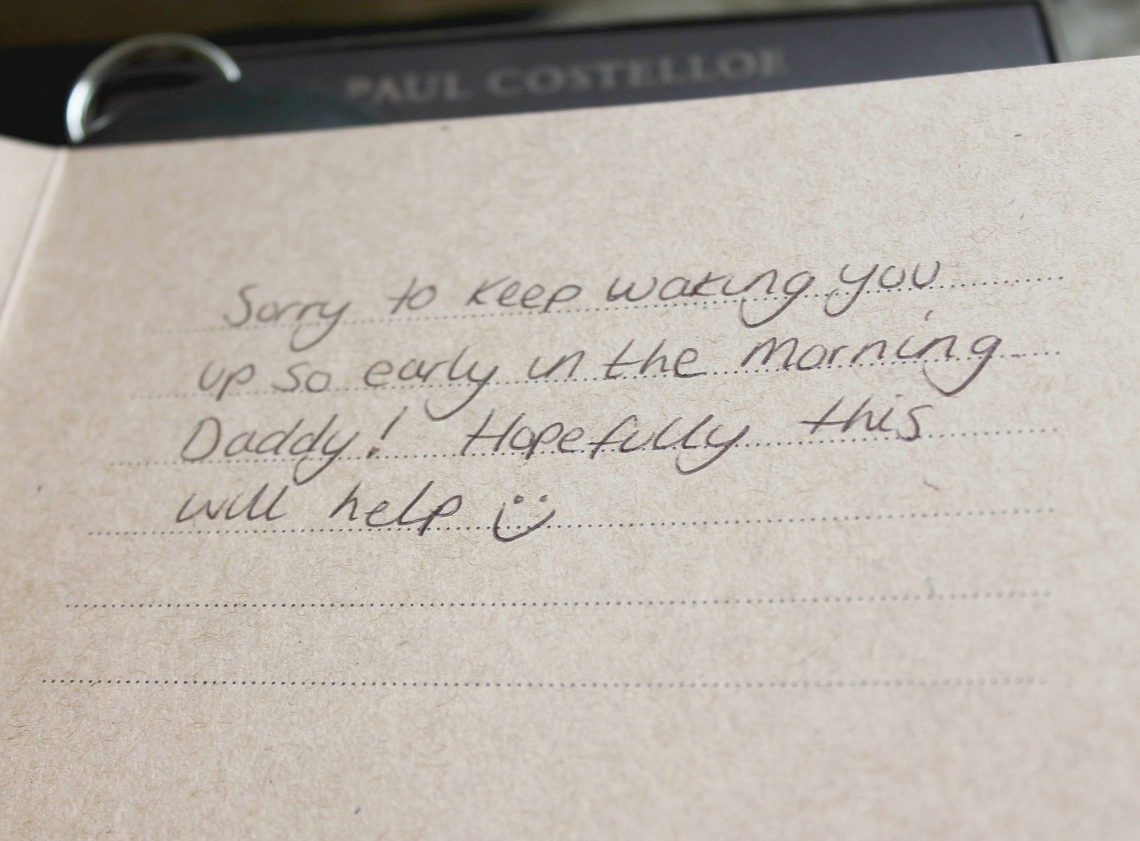 PAUL COSTELLOE
Sorry to keep waking you
up so early in the morning
Daddy! Hopefully this
will help :)